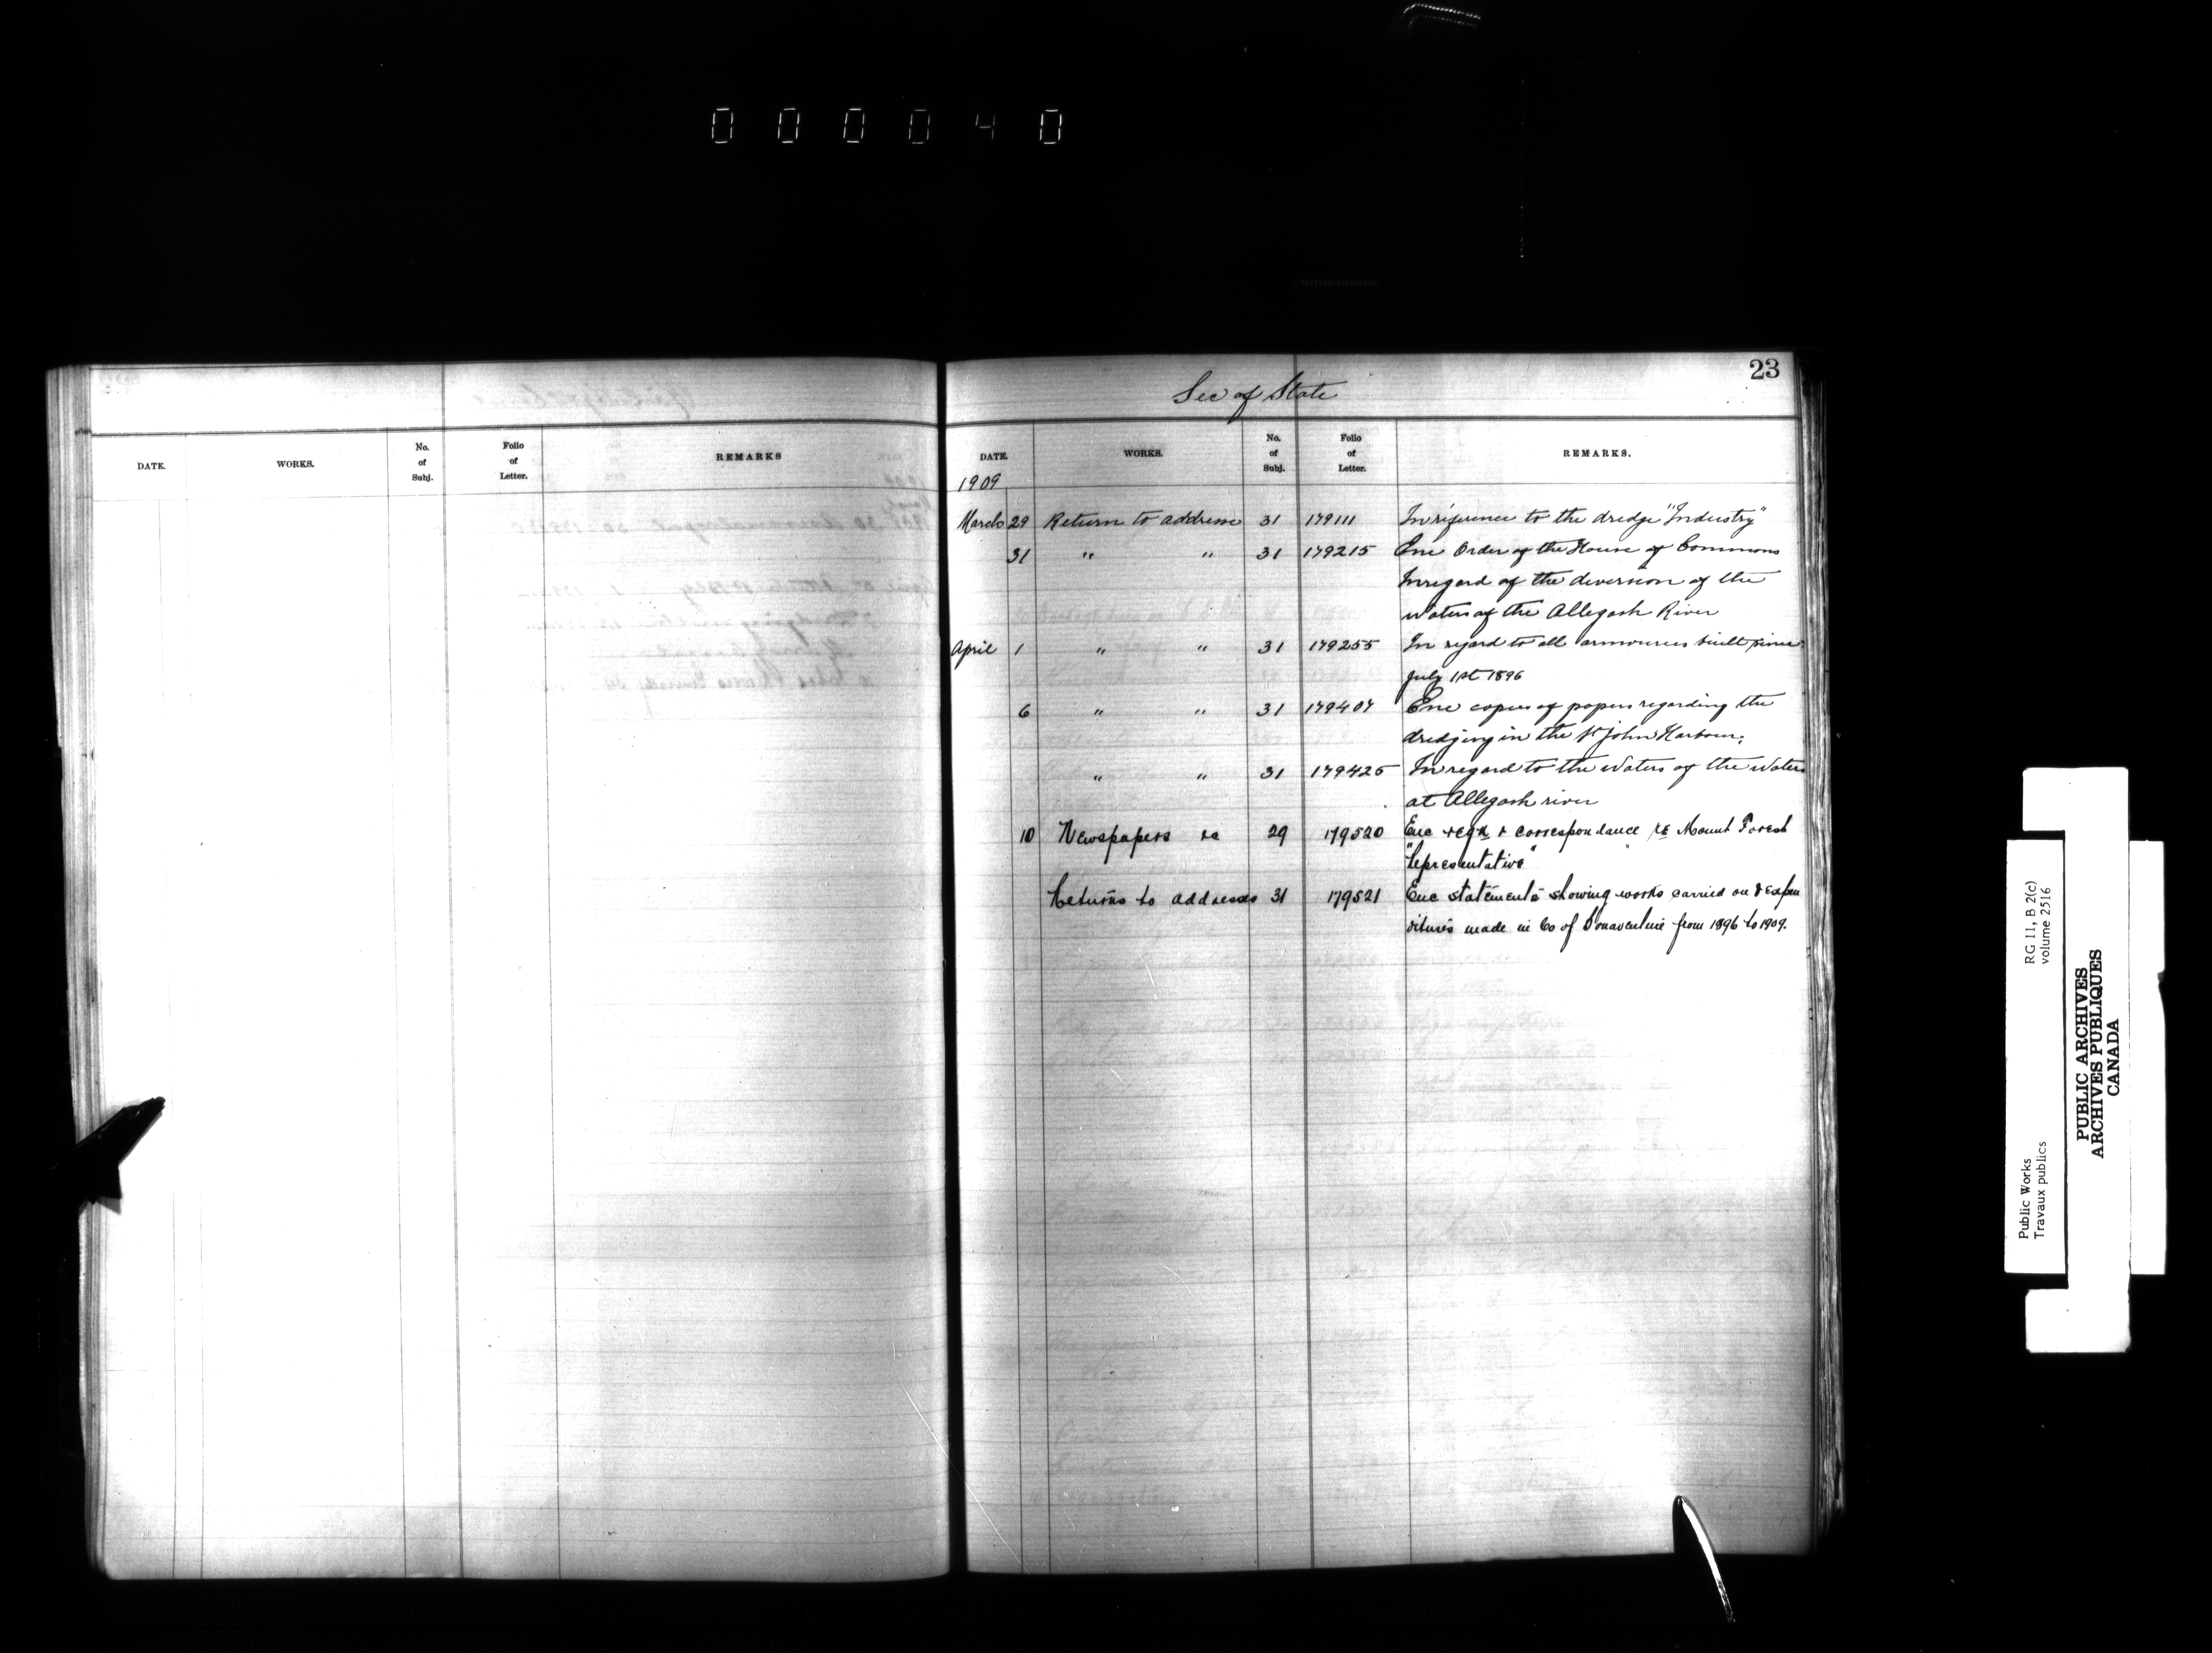 000040
23
Sec of State
DATE. WORKS. No. of Subj. Folio of Letter. REMARKS
DATE. WORKS. No. of Subj. Folio of Letter. REMARKS.
1909
March 29 Return to address 31 179111 In reference to the dredge "Industry"
31 " " 31 179215 Enc Order of the House of Commons
In regard of the diversion of the
Waters of the Allegash River
April 1 " " 31 179255 In regard to all armouries built since
July 1st 1896
6 " " 31 179407 Enc copies of papers regarding the
dredging in the St John Harbour.
" " 31 179425 In regard to the Waters of the Waters
at Allegash river
10 Newspapers re 29 179520 Enc reqn & correspondance re Mount Forest
"Representative"
Returns to addresses 31 179521 Enc statements showing works carried on & expen
ditures made in Co of Bonaventure from 1896 to 1909.
Public Works
Travaux publics
RG 11, B 2(c)
volume 2516
PUBLIC ARCHIVES
ARCHIVES PUBLIQUES
CANADA